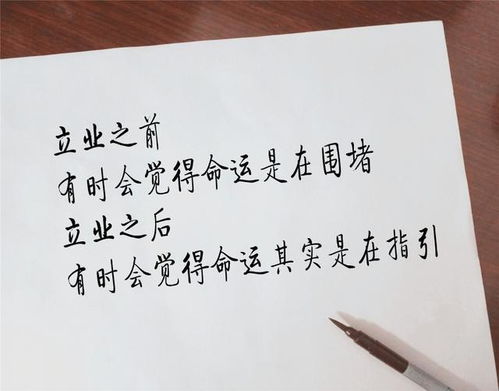 立业之前
有时会觉得命运是在围堵
立业之后
有时会觉得命运其实是在指引